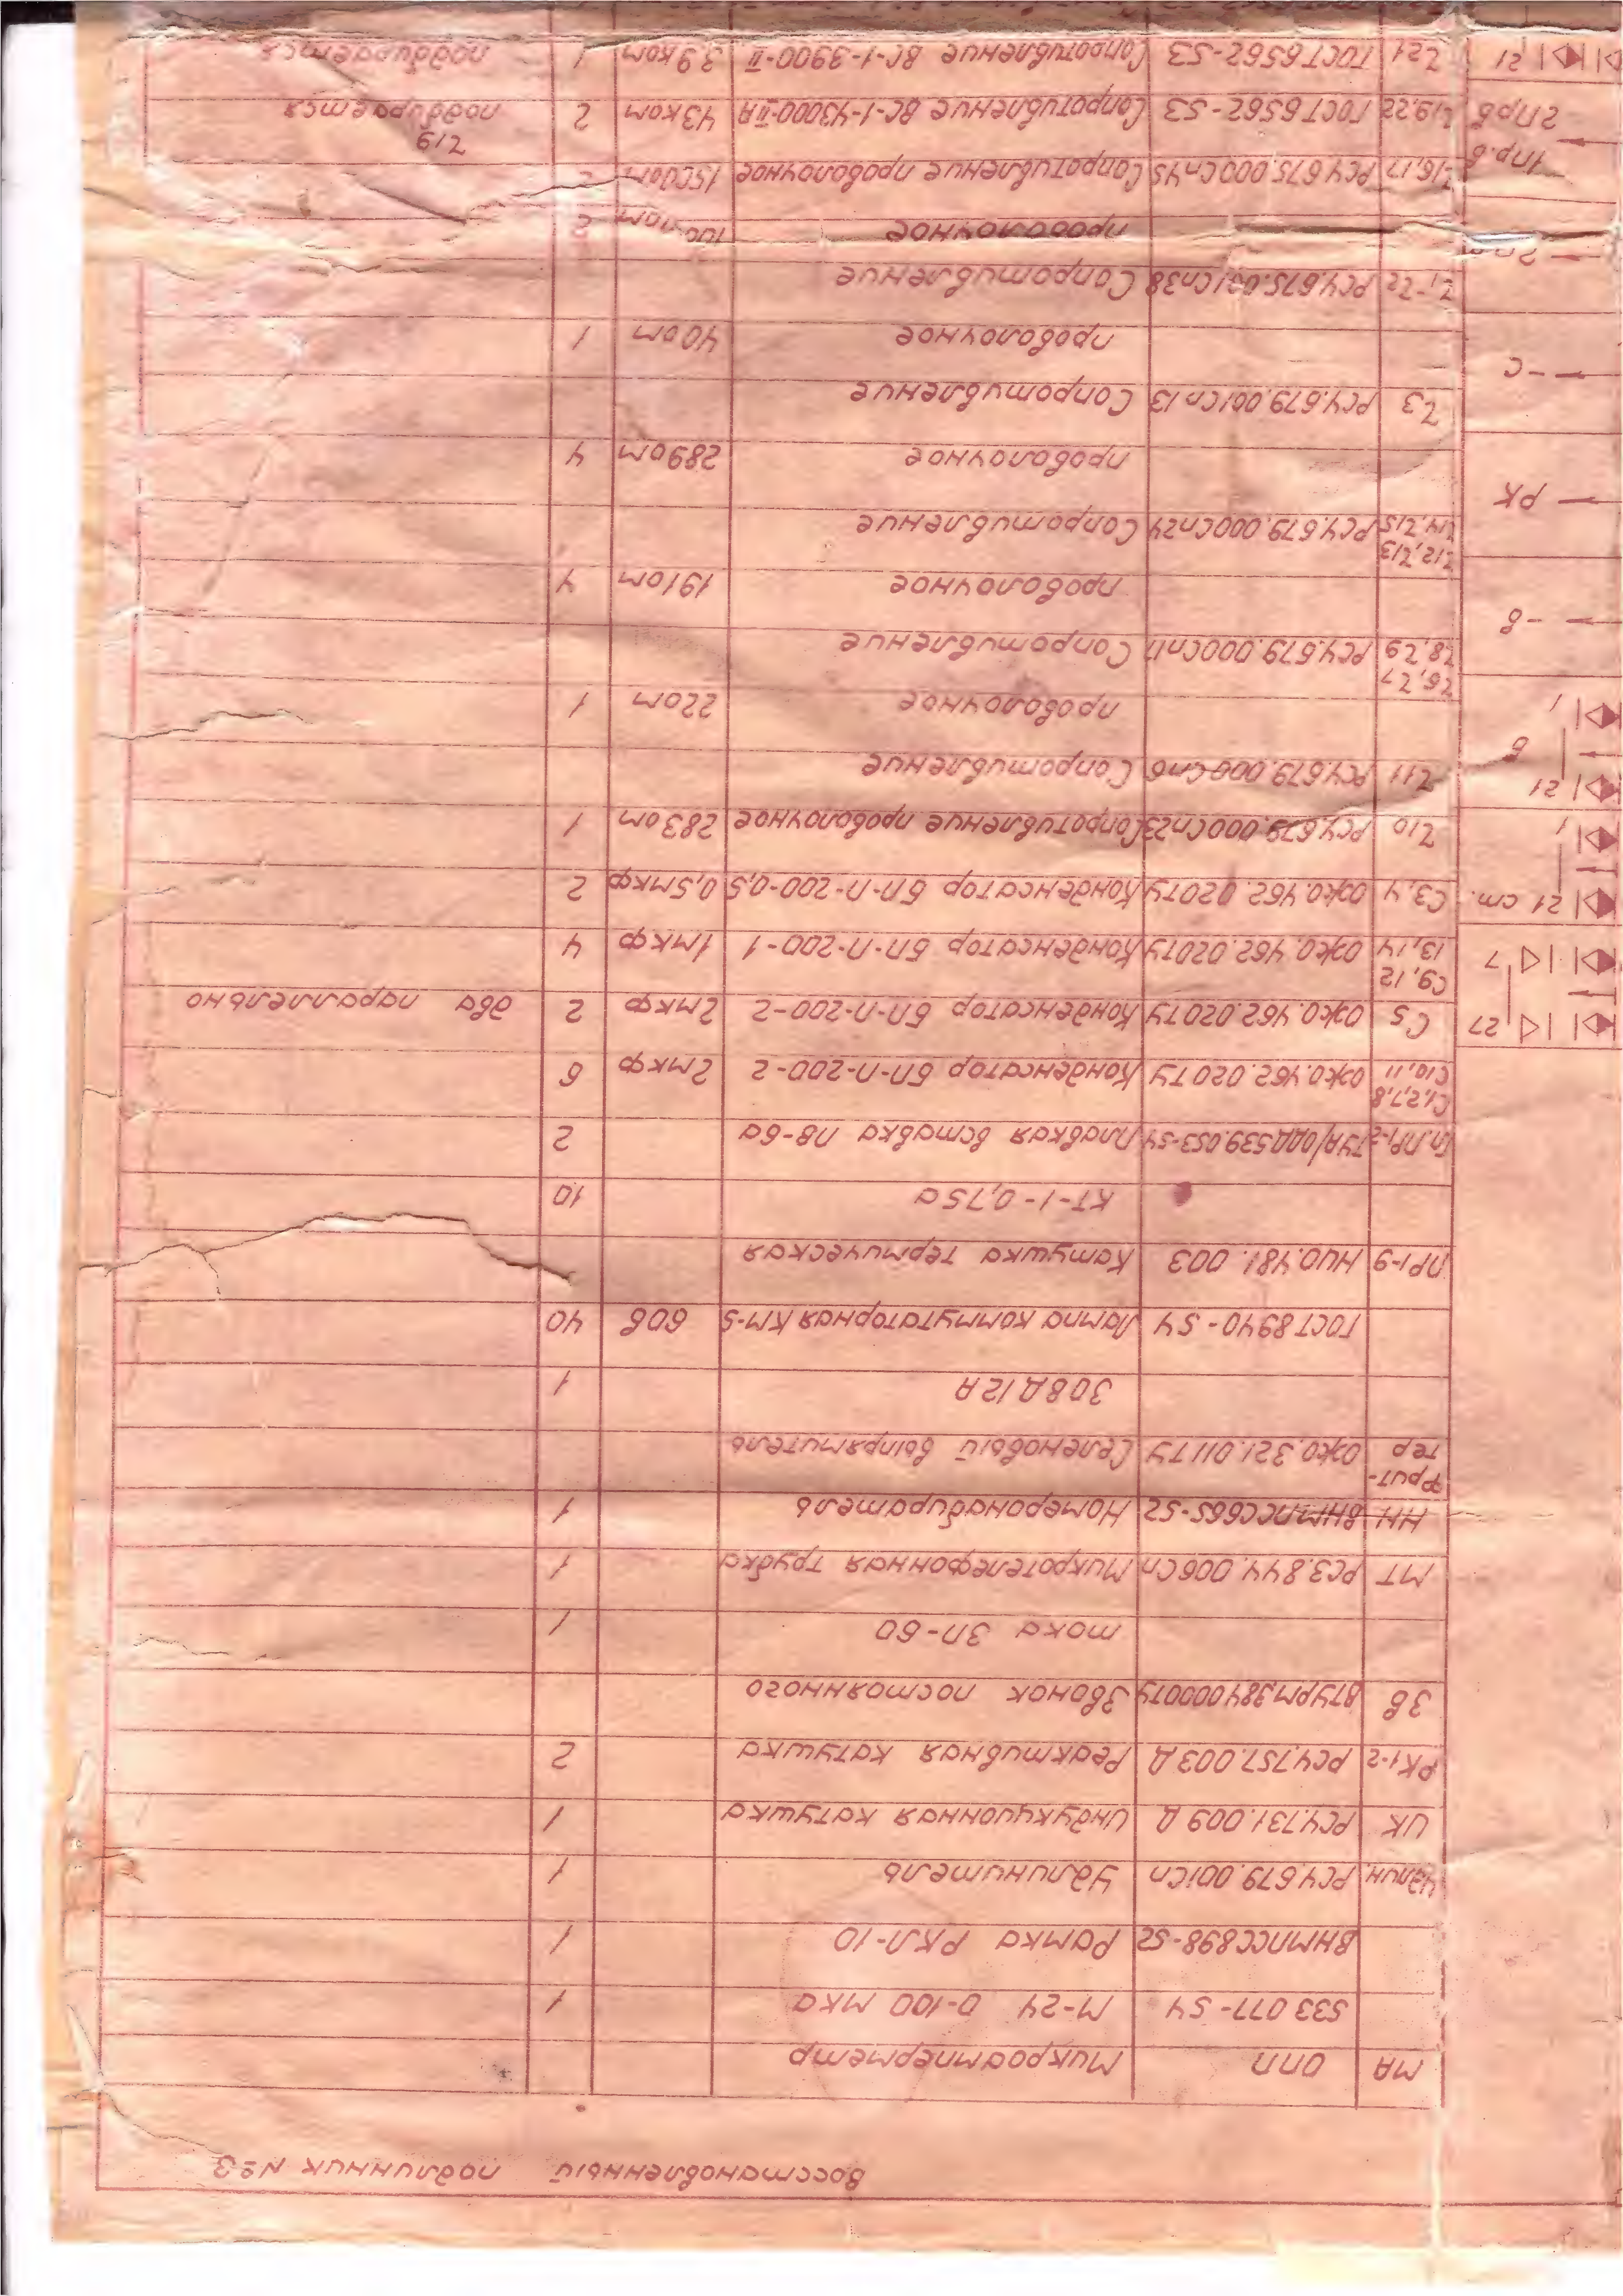 Восстановленный подлинник №3
МА ОПП Микроамперметр
533.077-54 М-24 0-100 мка 1
ВНМПСС898-52 Рамка РКЛ-10 1
Удлин. РС4.679.001Сп Удлинитель 1
ИК РС4.731.009Д Индукционная катушка 1
РК1-2 РС4.757.003Д Реактивная катушка 2
Зв ВТУРМ384000ТУ Звонок постоянного
тока ЗП-60 1
МТ РС3.844.006Сп Микротелефонная трубка 1
НН ВНМПСС665-52 Номеронабиратель 1
Фрит-
тер ОЖ0.321.011ТУ Селеновый выпрямитель
308Д12А 1
ГОСТ8940-54 Лампа коммутаторная КМ-5 60в 40
ПР1-9 НИ0.481.003 Катушка термическая
КТ-1-0,75а 10
539.053-54 Плавкая вставка ПВ-6а 2
С1,2,7,8
С10,11 ОЖ0.462.020ТУ Конденсатор БП-П-200-2 2мкф 6
С5 ОЖ0.462.020ТУ Конденсатор БП-П-200-2 2мкф 2 два параллельно
С9,12
13,14 ОЖ0.462.020ТУ Конденсатор БП-П-200-1 1мкф 4
С3,4 ОЖ0.462.020ТУ Конденсатор БП-П-200-0,5 0,5мкф 2
r10 РС4.679.000Сп23 Сопротивление проволочное 283ом 1
r11 РС4.679.000Сп6 Сопротивление
проволочное 22ом 1
r6,r7
r8,r9 РС4.679.000Сп17 Сопротивление
проволочное 191ом 4
r12,r13
r14,r15 РС4.679.000Сп24 Сопротивление
проволочное 289ом 4
r3 РС4.679.001Сп13 Сопротивление
проволочное 40ом 1
r1-r2 РС4.675.001Сп38 Сопротивление
проволочное 2
r16,17 РС4.675.000Сп45 Сопротивление проволочное 1500ом 2
r19,22 ГОСТ6562-53 Сопротивление ВС-1-43000-IIА 43ком 2 r19 подбирается
r21 ГОСТ6562-53 Сопротивление ВС-1-3900-II 3,9ком 1 подбирается
27
7
21 ст.
1
21
6
1
-в
РК
-с
1пр.в
2прв
21